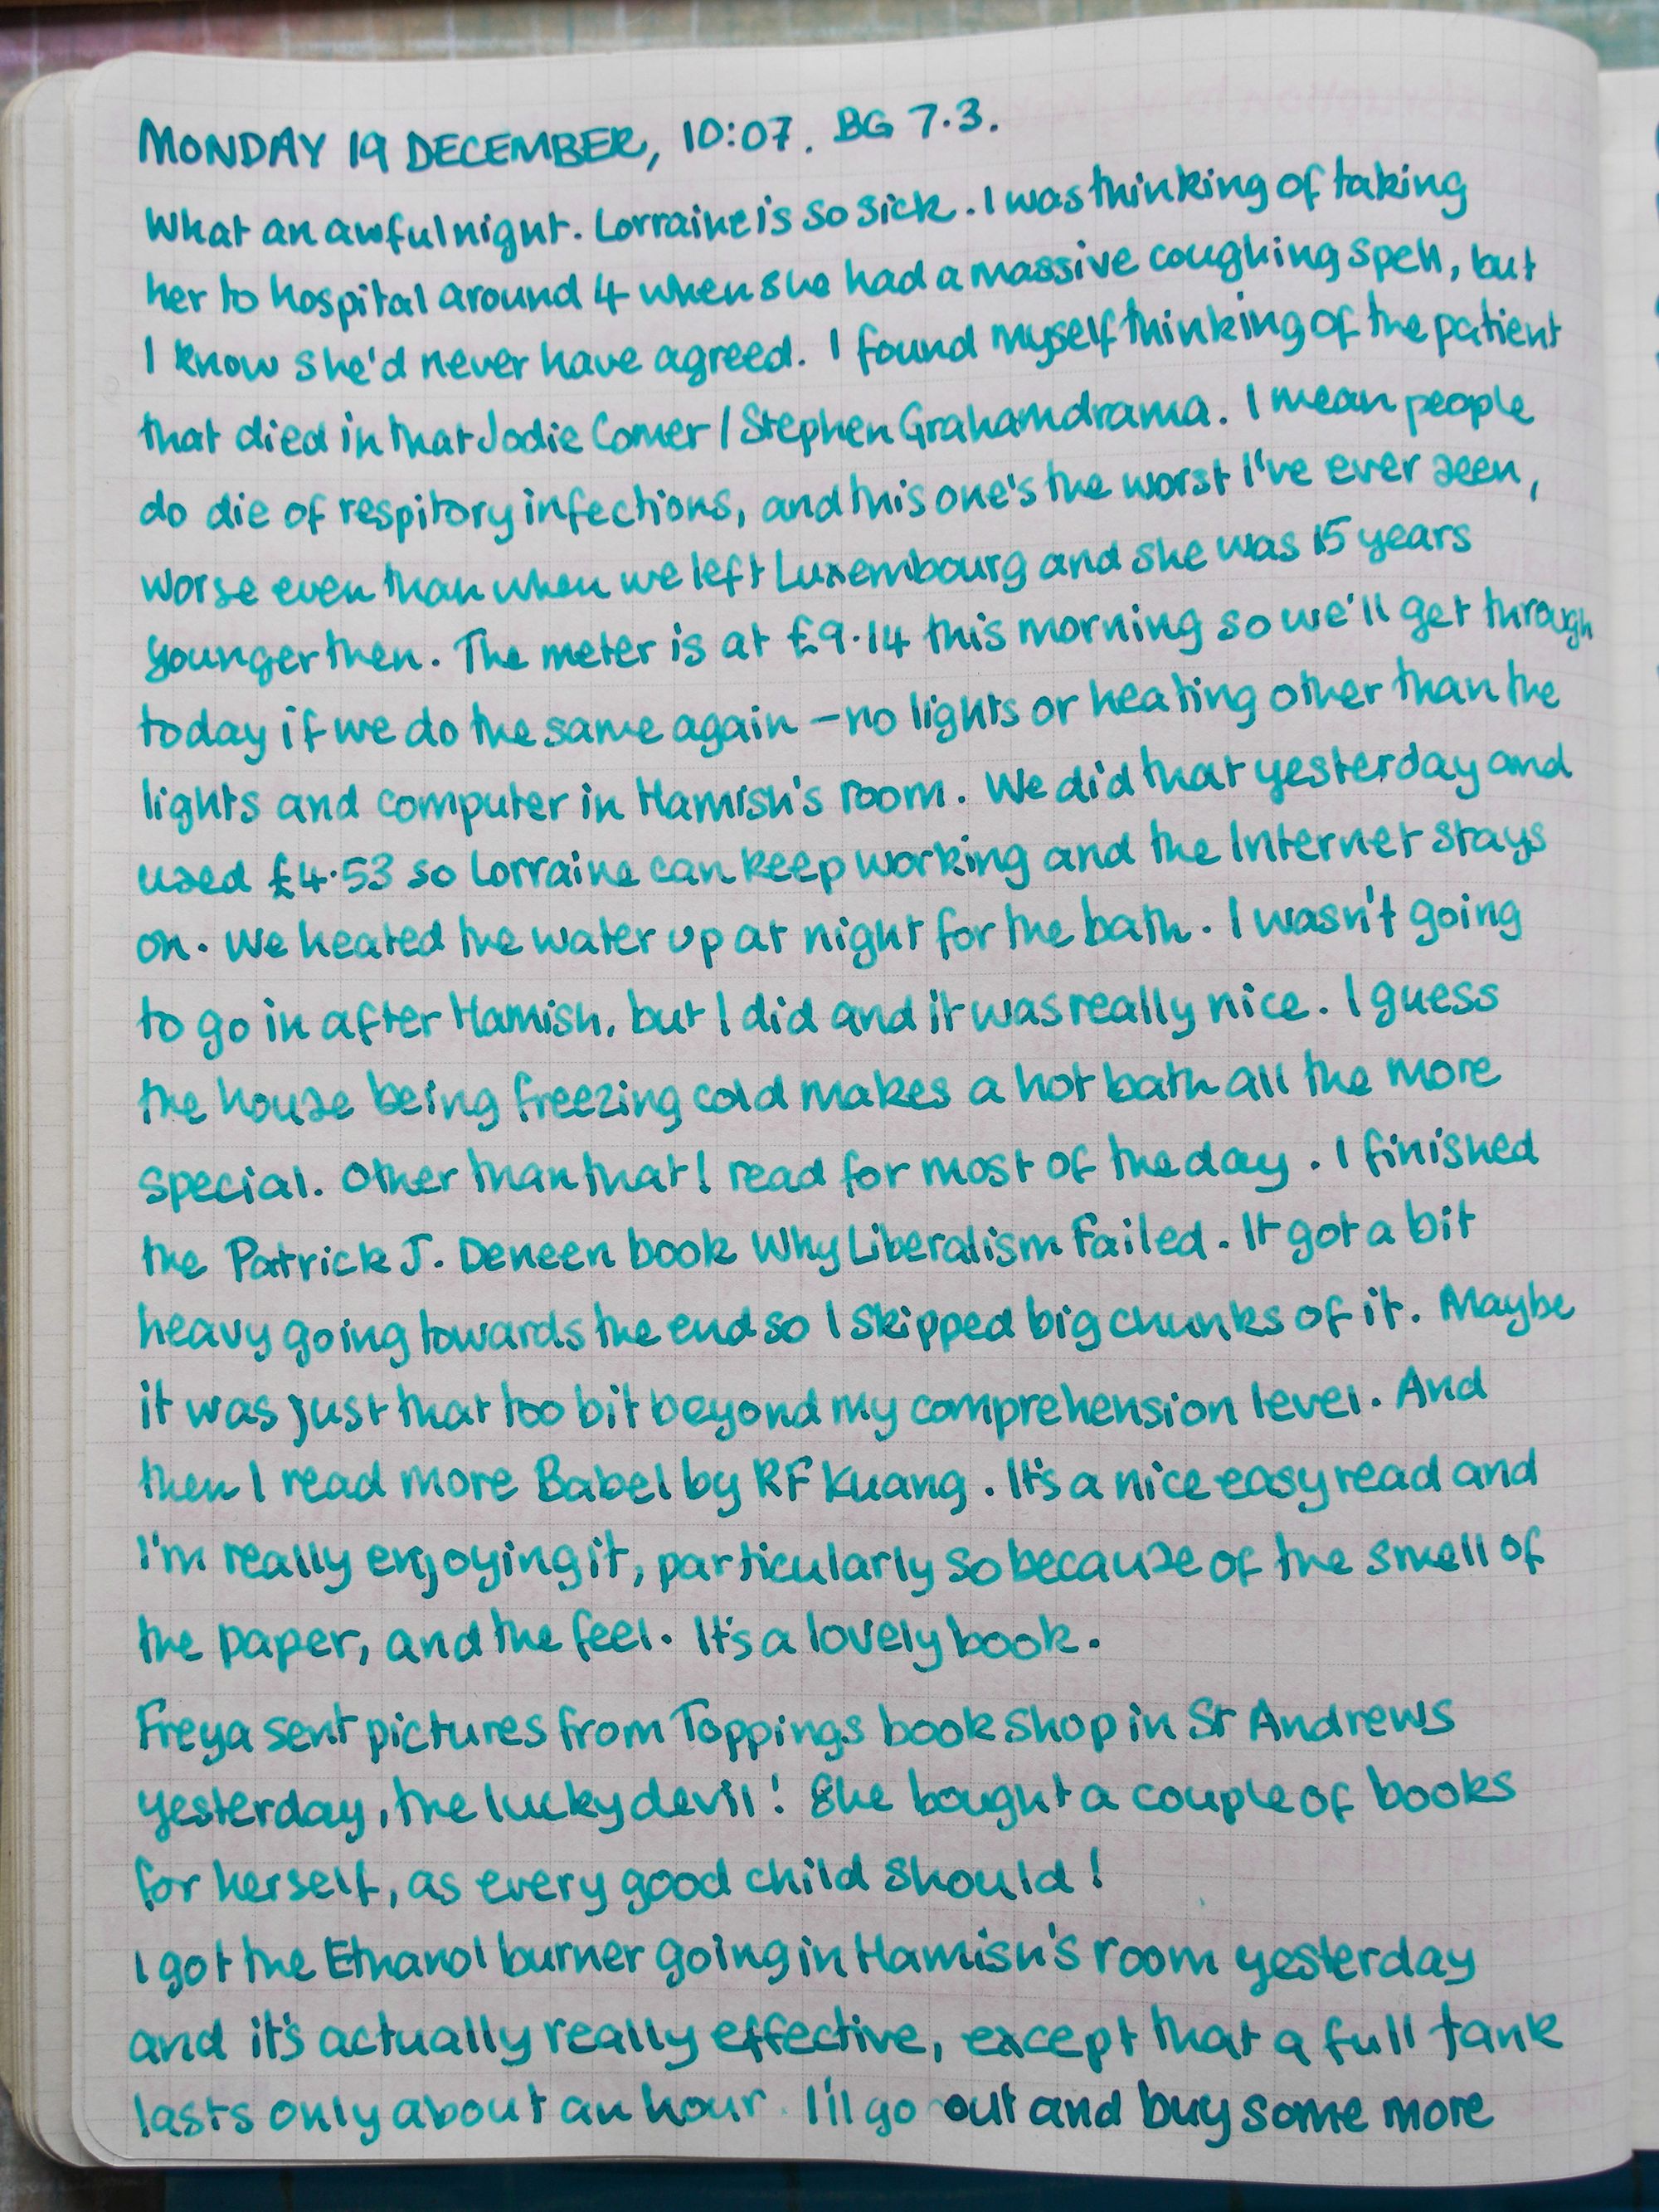 MONDAY 19 DECEMBER, 10:07. BG 7.3.
What an awful night. Lorraine is so sick. I was thinking of taking
her to hospital around 4 when she had a massive coughing spell, but
I know she'd never have agreed. I found myself thinking of the patient
that died in that Jodie Comer / Stephen Graham drama. I mean people
do die of respitory infections, and this one's the worst I've ever seen,
worse even than when we left Luxembourg and she was 15 years
younger then. The meter is at £9.14 this morning so we'll get through
today if we do the same again - no lights or heating other than the
lights and computer in Hamish's room. We did that yesterday and
used £4.53 so Lorraine can keep working and the Internet stays
on. We heated the water up at night for the bath. I wasn't going
to go in after Hamish, but I did and it was really nice. I guess
the house being freezing cold makes a hot bath all the more
special. Other than that I read for most of the day. I finished
the Patrick J. Deneen book Why Liberalism Failed. It got a bit
heavy going towards the end so I skipped big chunks of it. Maybe
it was just that too bit beyond my comprehension level. And
then I read more Babel by RF Kuang. It's a nice easy read and
I'm really enjoying it, particularly so because of the smell of
the paper, and the feel. It's a lovely book.
Freya sent pictures from Toppings bookshop in St Andrews
yesterday, the lucky devil! She bought a couple of books
for herself, as every good child should!
I got the Ethanol burner going in Hamish's room yesterday
and it's actually really effective, except that a full tank
lasts only about an hour. I'll go out and buy some more